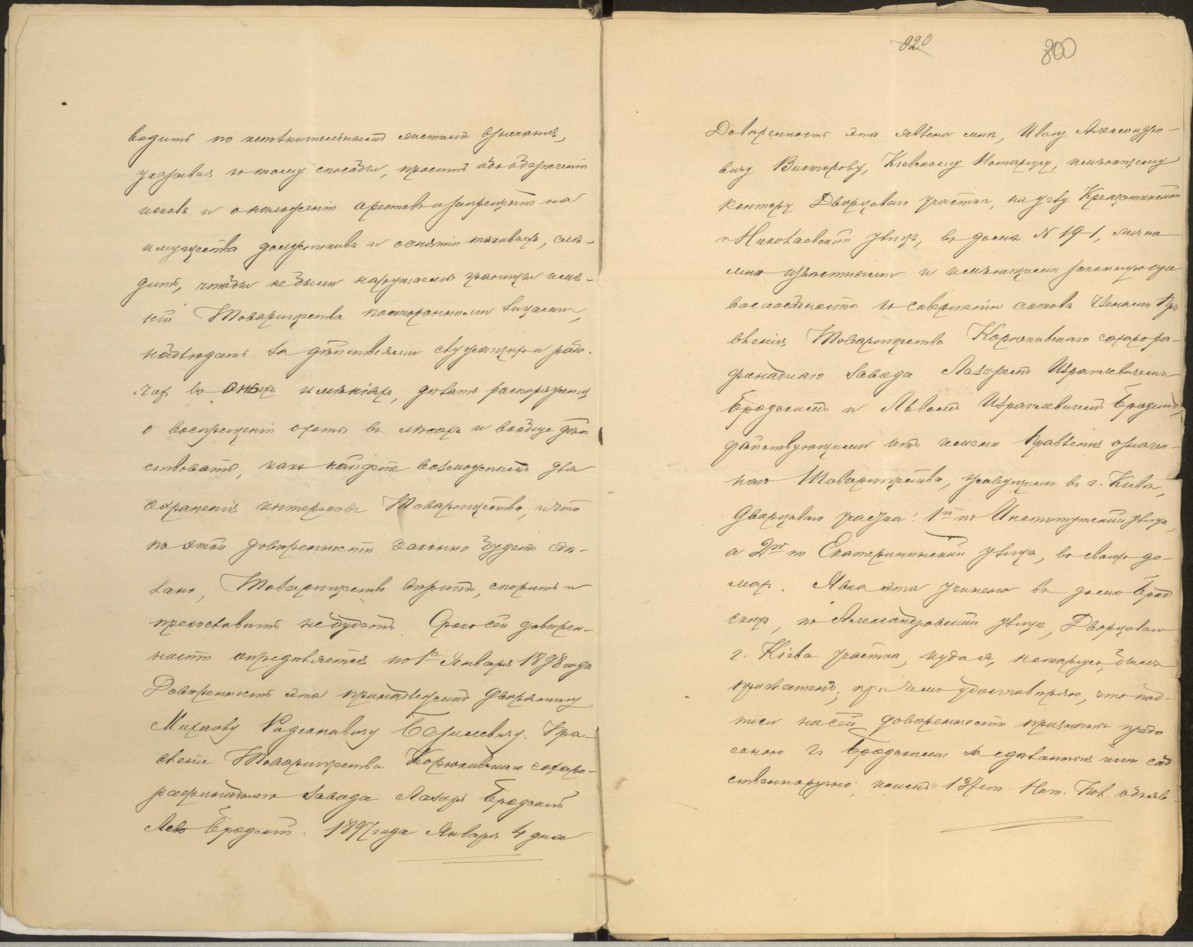 водить по исполнительнымъ листамъ взысканія,
указывая къ тому способы, просить объ обезпеченіи
исковъ и о наложеніи арестовъ и запрещеній на
имущества должниковъ и о снятіи таковыхъ, слѣ-
дить, чтобы не были нарушаемы границы имѣ-
ній Товарищества посторонними лицами,
наблюдать за дѣйствіями служащихъ и рабо-
чихъ въ оныхъ имѣніяхъ, дѣлать распоряженія
о воспрещеніи охоты въ лѣсахъ и вообще дѣй-
ствовать, какъ найдете возможнымъ для
охраненія интересовъ Товарищества, и что
по этой довѣренности законно будетъ сдѣ-
лано, Товарищество вѣритъ, споритъ и
прекословить не будетъ. Срокъ сей довѣрен-
ности опредѣляется по 1е Января 1898 года
Довѣренность эта принадлежитъ дворянину
Михаилу Базилевичу. Пра-
вленіе Товарищества Корюковскаго сахаро-
рафинаднаго завода Лазарь Бродскій
Левъ Бродскій. 1897 года Января 4 дня
820 800
Довѣренность эта явлена мнѣ, Ивану Александро-
вичу Викторову, Кіевскому Нотаріусу, имѣющему
контору Дворцоваго участка, на углу Крещатинской
и Николаевской улицъ, въ домѣ N 19-1, лично
мнѣ извѣстными и имѣющими законную пра-
воспособность къ совершенію актовъ Членами Пра
вленія Товарищества Корюковскаго сахарора-
финаднаго завода Лазаремъ Израилевичемъ
Бродскимъ и Львомъ Израилевичемъ Бродскимъ,
дѣйствующими отъ имени Правленія означен-
наго Товарищества, живущими въ г. Кіевѣ,
Дворцоваго участка: 1й по Институтской улицѣ,
а 2й по Екатерининской улицѣ, въ своихъ до-
махъ. Явка эта учинена въ домѣ Брод
скихъ, по Александровской улицѣ, Дворцоваго
г. Кіева участка, куда я, нотаріусъ, былъ
приглашенъ; при чемъ удостовѣряю, что под-
писи на сей довѣренности признаны предо
мною Гг Бродскими за сдѣланныя ими соб
ственноручно, 137 ст. Нот. Пол.